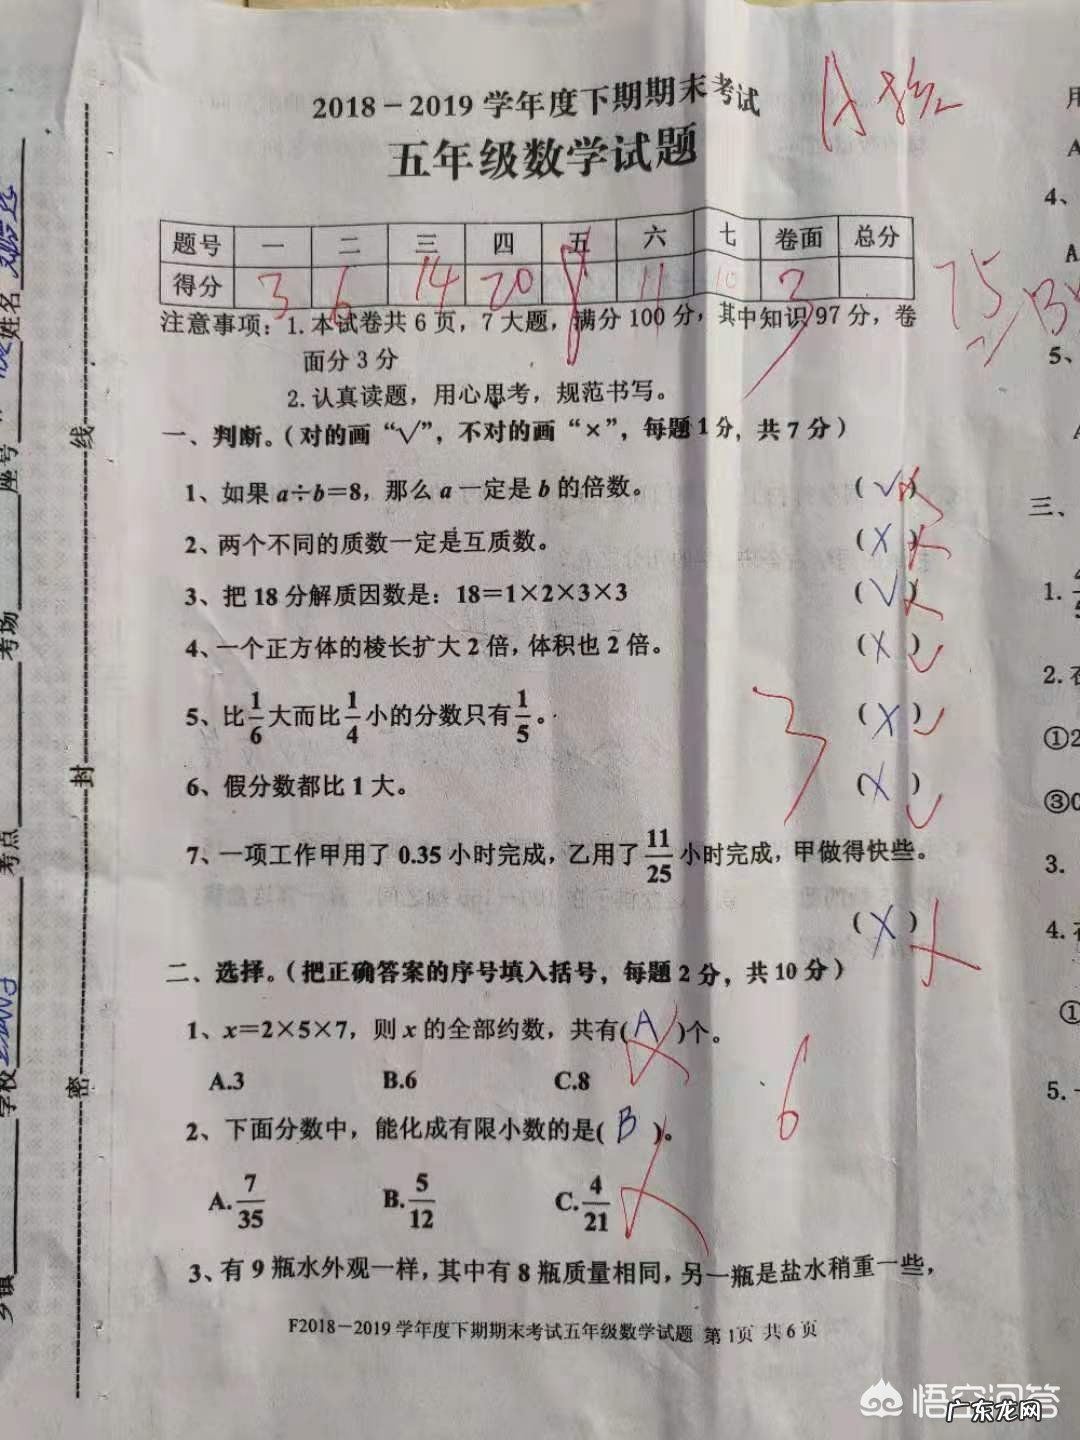 2018-2019学年度下期期末考试
五年级数学试题
A
题号 一 二 三 四 五 六 七 卷面 总分
得分 3 6 14 20 8 11 10 3
75
注意事项：1.本试卷共6页，7大题，满分100分，其中知识97分，卷
面分3分
2.认真读题，用心思考，规范书写。
一、判断。（对的画“√”，不对的画“×”，每题1分，共7分）
1、如果a÷b=8，那么a一定是b的倍数。 （√）
2、两个不同的质数一定是互质数。 （×）
3、把18分解质因数是：18=1×2×3×3 （√）
4、一个正方体的棱长扩大2倍，体积也2倍。 （×）
5、比1/6大而比1/4小的分数只有1/5。 （×）
3
6、假分数都比1大。 （×）
7、一项工作甲用了0.35小时完成，乙用了11/25小时完成，甲做得快些。
（×）
二、选择。（把正确答案的序号填入括号，每题2分，共10分）
1、x=2×5×7，则x的全部约数，共有(A)个。
A.3 B.6 C.8
6
2、下面分数中，能化成有限小数的是(B)。
A.7/35 B.5/12 C.4/21
3、有9瓶水外观一样，其中有8瓶质量相同，另一瓶是盐水稍重一些，
F2018-2019学年度下期期末考试五年级数学试题 第1页 共6页
密 封 线
姓名
座号
考场
考点
学校
乡镇
用
A
4、
A
5、
三、
1.
2.
①2
③0
3.
4.
①
5.
悟空问答
广东龙网